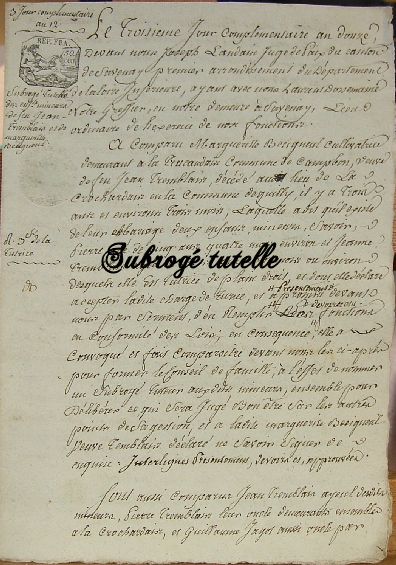 3e Jour Complimentaire
an 12
REP. FRA.
Subrogé Tutelle
des enfts mineurs
de feu Jean
Tremblain et de
marguerite
Bréguent
Le Troisieme Jour Complimentaire an douze
Devant nous Joseph Landais Juge de paix du canton
de Savenay premier arrondissement du Département
de la loire Inférieure, ayant avec nous
Notre Greffier, en notre demeure à Savenay, Lieu
ordinaire de l'exercice de nos fonctions.
A Comparu Marguerite Cultivatrice
demeurant à la Commune de Campbon, veuve
de feu Jean Tremblain, décédé au lieu de La
Crochardais en la Commune de quilly, il y a Trois
ans et environ Trois mois, Laquelle a dit qu'il existe
de leur deux enfans mineurs, Savoir,
pierre de cinq ans quatre mois environ et Jeanne
Subrogé tutelle
Tutrice de plain droit, et
accepter ladite charge de Tutrice, et a devant
Presentement
nous par Serment, d'en Remplir Les fonctions
en Conformité des Loix; en Conséquence, elle a
Convoqué et fait Comparaitre devant nous les ci-après
pour former le Conseil de famille, à l'effet de nommer
un Subrogé Tuteur auxdits mineurs, ensemble pour
Délibérer ce qui Sera Jugé Bon être Sur les autres
points de la gestion, et a ladite marguerite
Veuve Tremblain déclaré ne Savoir Signer de
enquise. Interlignes Presentement, devoirs et, approuvés.
Sont aussi Comparus Jean Tremblain ayeul desdits
mineurs, Pierre Tremblain leur oncle demeurants ensemble
à la Crochardais, et Guillaume Jagot aussi oncle par